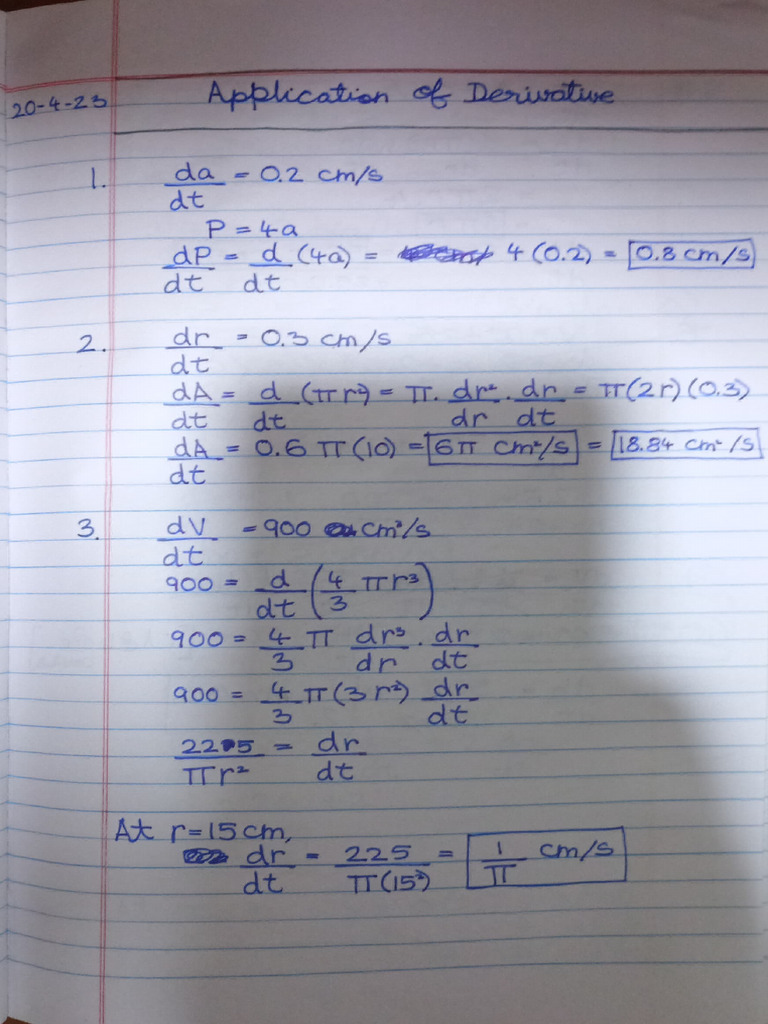 20-4-23 Application of Derivative
1. da/dt = 0.2 cm/s
P = 4a
dP/dt = d/dt (4a) = 4 (0.2) = 0.8 cm/s
2. dr/dt = 0.3 cm/s
dA/dt = d/dt (πr²) = π. dr²/dr . dr/dt = π(2r) (0.3)
dA/dt = 0.6 π(10) = 6π cm²/s = 18.84 cm²/s
3. dV/dt = 900 cm³/s
900 = d/dt (4/3 πr³)
900 = 4/3 π dr³/dr . dr/dt
900 = 4/3 π(3r²) dr/dt
225/πr² = dr/dt
At r=15cm,
dr/dt = 225/π(15²) = 1/π cm/s